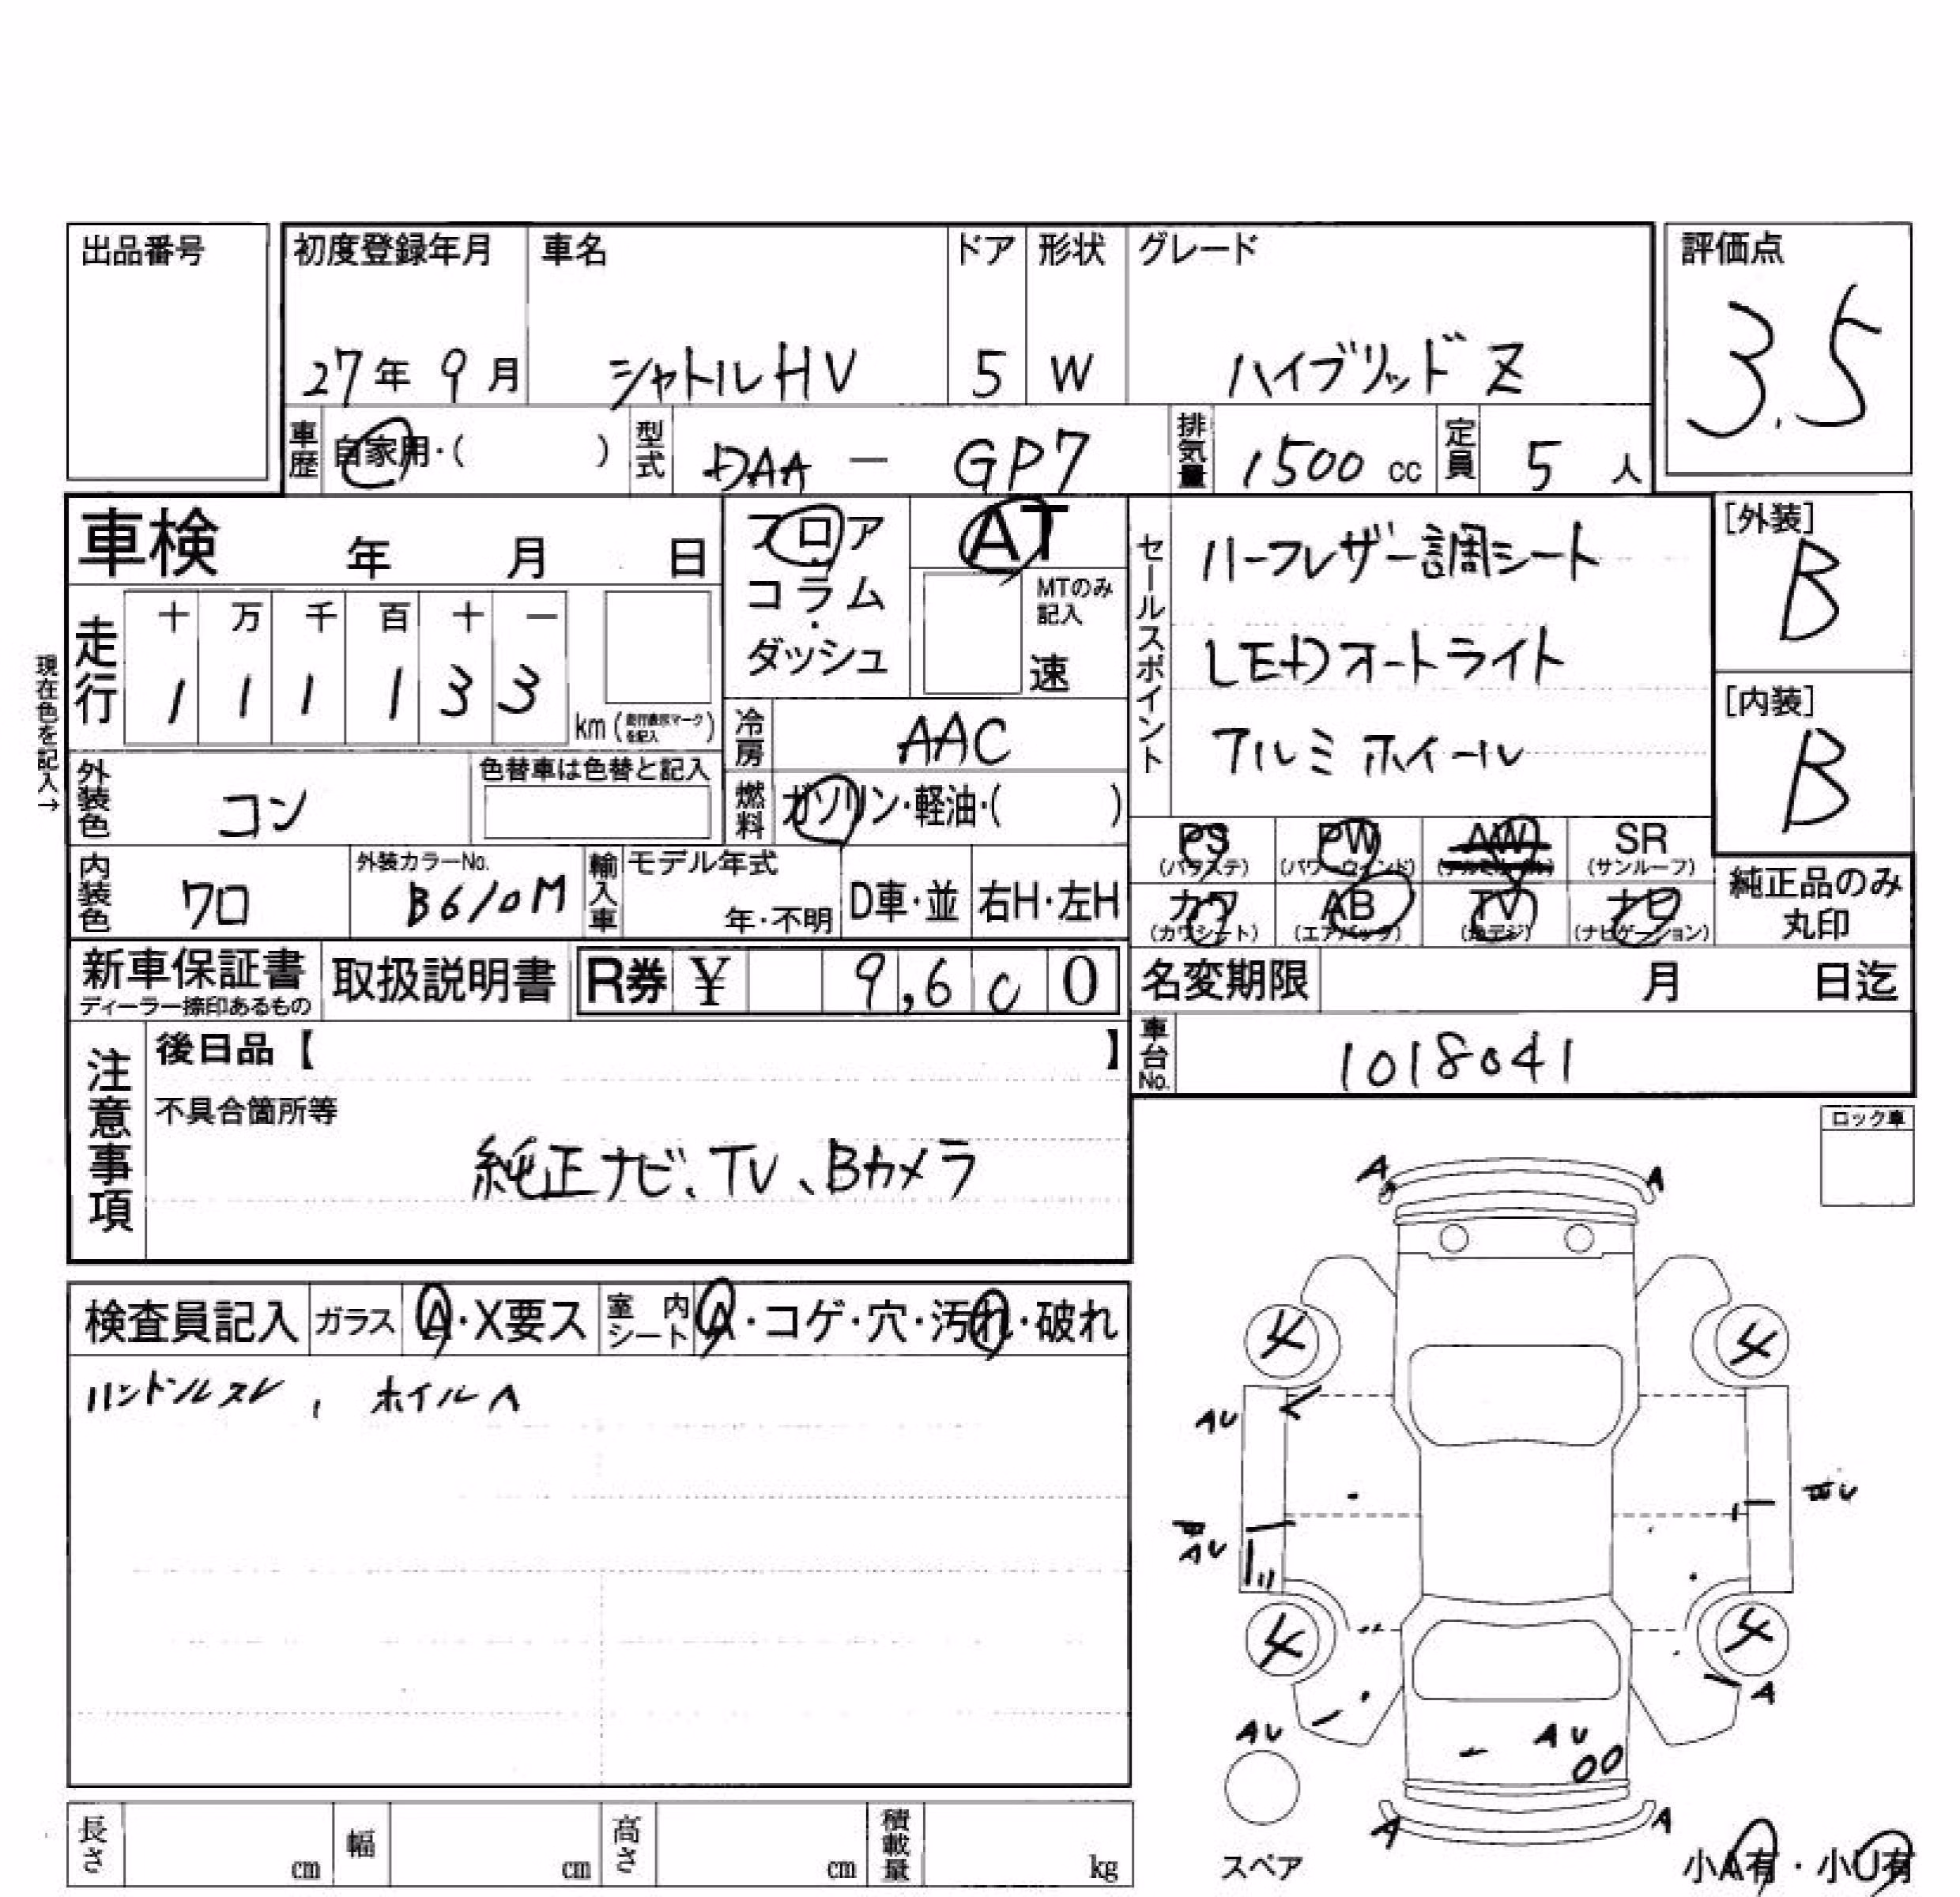 出品番号
初度登録年月 車名 ドア 形状 グレード 評価点
27年 9月 シャトルHV 5 W ハイブリッド Z 3.5
車歴 自家用・( ) 型式 DAA － GP7 排気量 1500 cc 定員 5 人
車検 年 月 日
フロア・コラム・ダッシュ
AT
MTのみ記入
速
セールスポイント
ハーフレザー調シート
LEDオートライト
アルミホイール
[外装]
B
[内装]
B
現在色を記入→
走行
十 万 千 百 十 一
1 1 1 1 3 3
km (走行表示マークを記入)
冷房 AAC
外装色 コン 色替車は色替と記入
燃料 ガソリン・軽油・( )
内装色 クロ 外装カラーNo. B610M 輸入車 モデル年式 年・不明 D車・並 右H・左H
PS (パワステ) PW (パワーウィンド) AW (アルミホイル) SR (サンルーフ)
カワ (カワシート) AB (エアバッグ) TV (地デジ) ナビ (ナビゲーション)
純正品のみ
丸印
新車保証書 ディーラー捺印あるもの 取扱説明書 R券 ¥ 9,6 0 0
名変期限 月 日迄
車台No. 1018041
注意事項
後日品【 】
不具合箇所等
純正ナビ、TV、Bカメラ
ロック車
検査員記入 ガラス A・X要ス 室内シート A・コゲ・穴・汚れ・破れ
ハンドルスレ, ホイルA
A A
4 4
AU
AU
4 4
A
AU AU
A A
スペア
小A有・小U有
長さ cm 幅 cm 高さ cm 積載量 kg